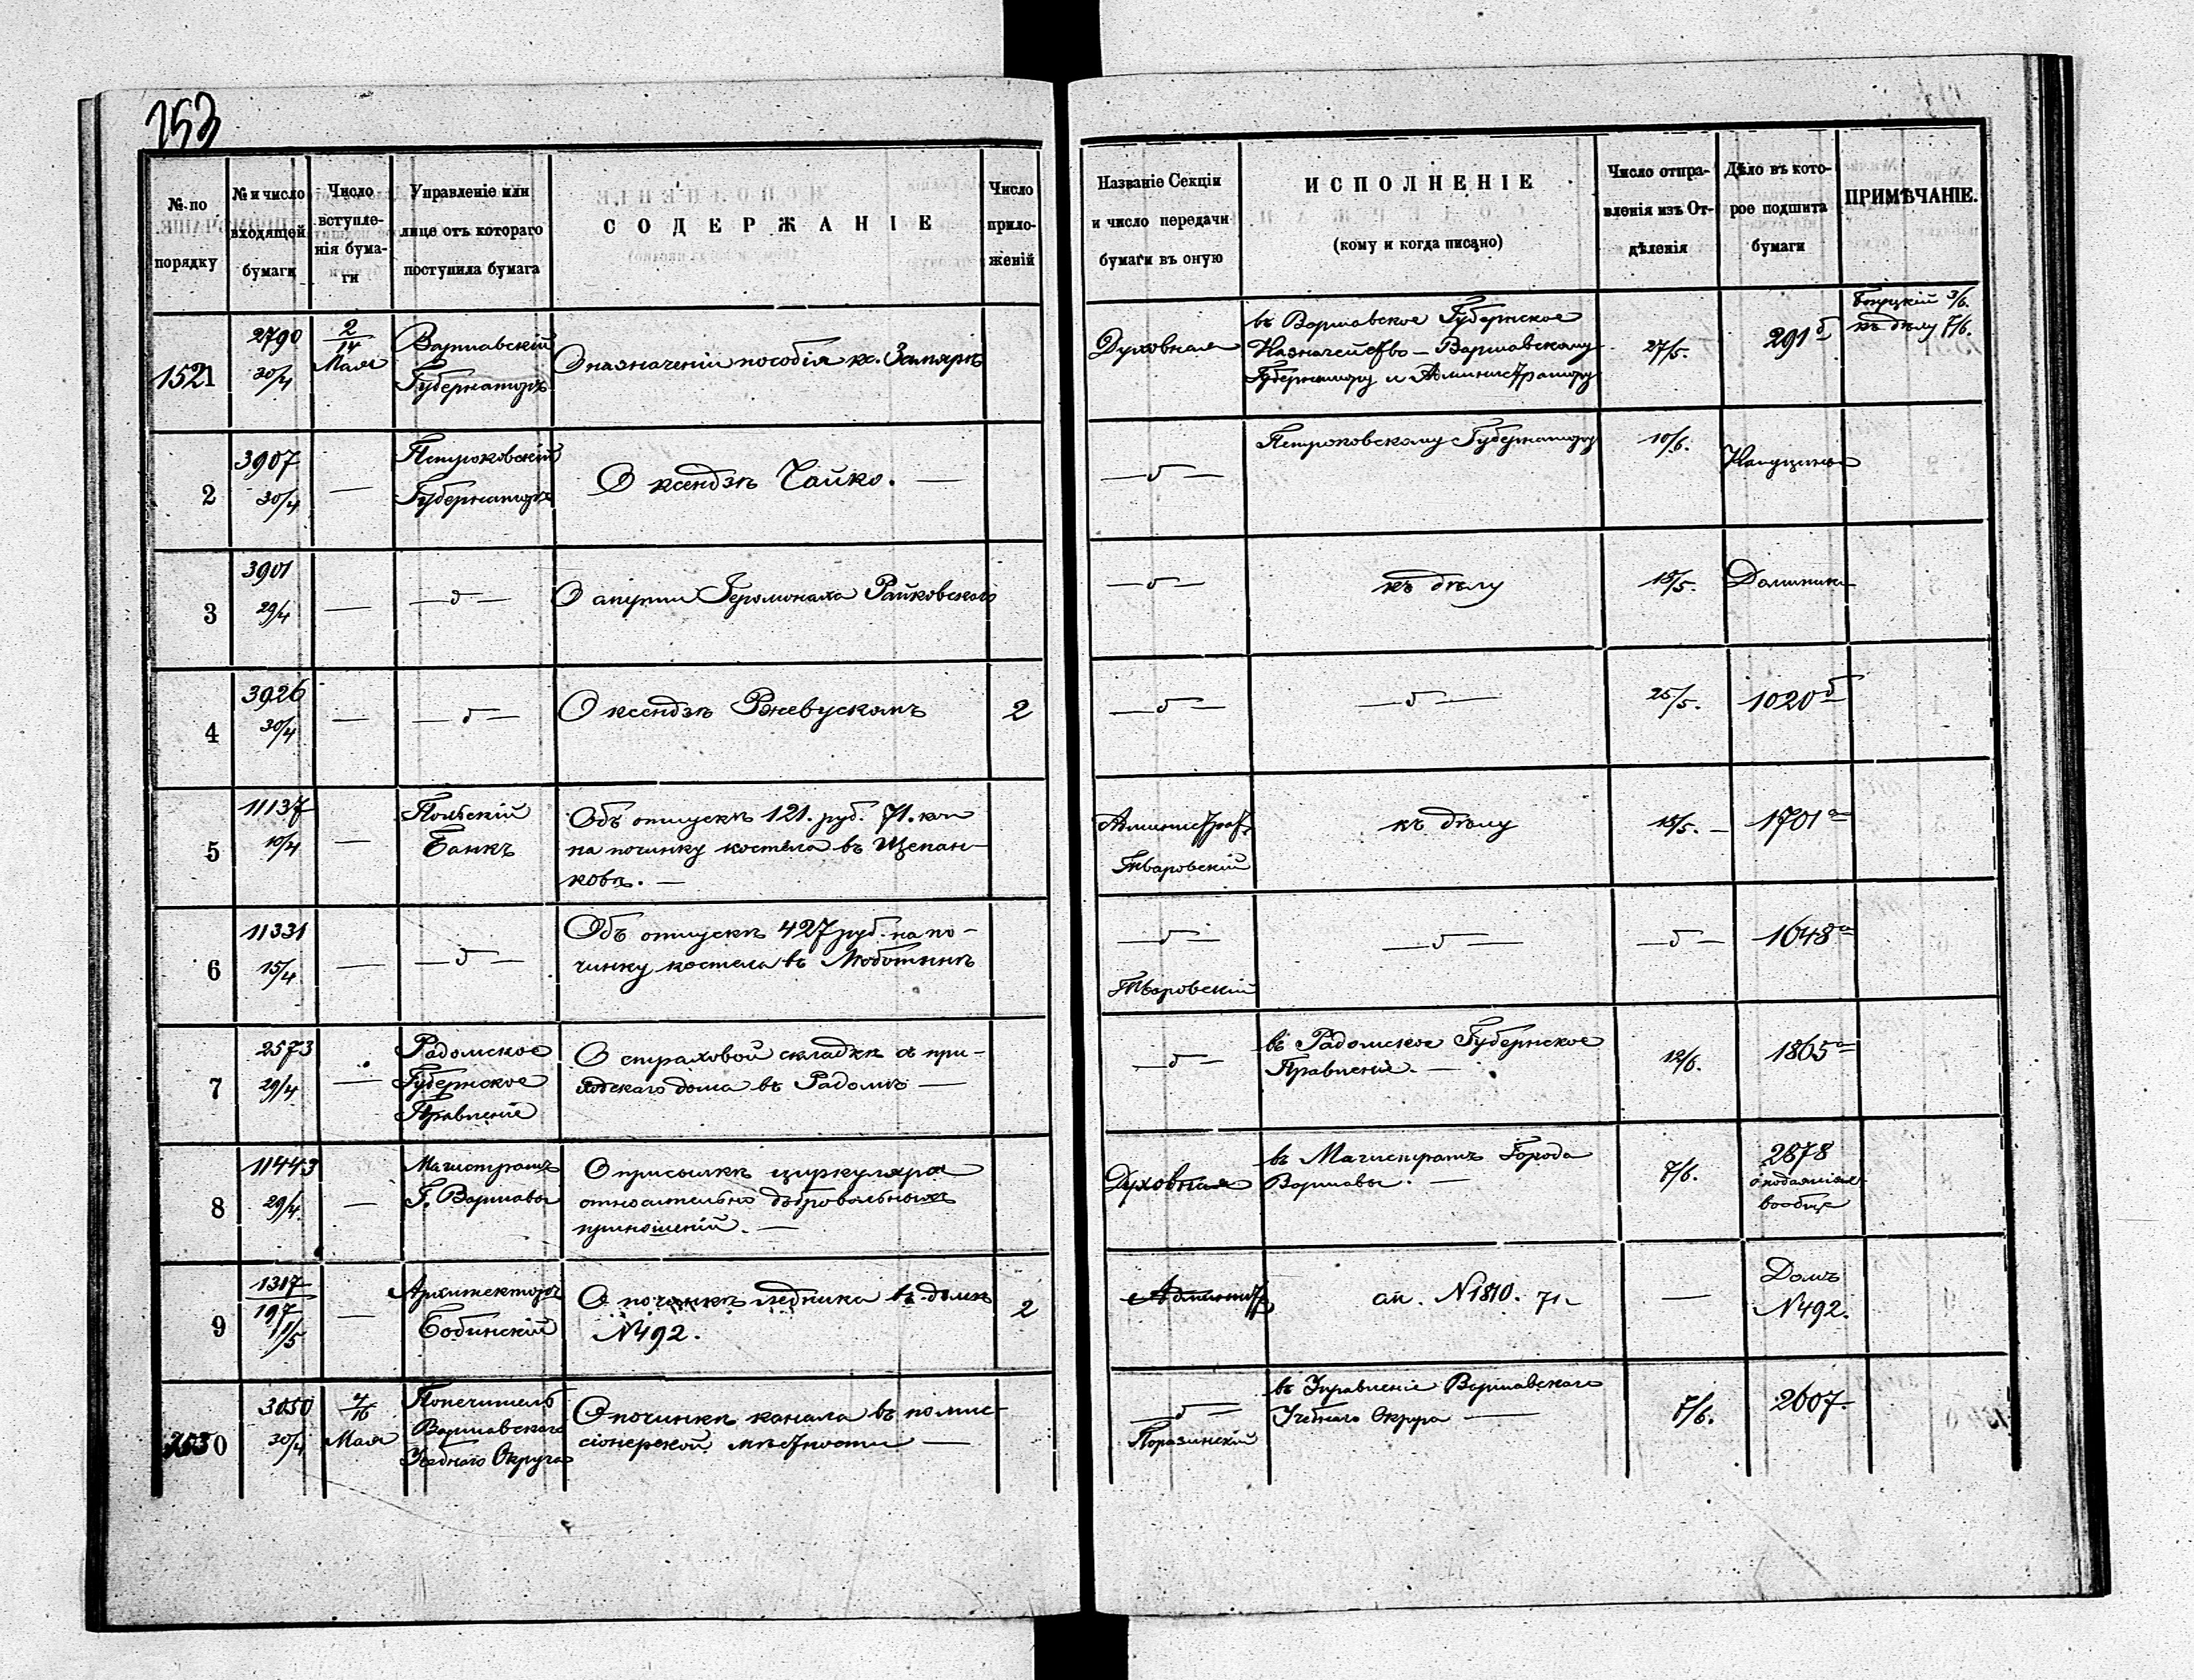 153
№ по
порядку
№ и число
входящей
бумаги
Число
вступле-
нія бума-
ги
Управленіе или
лице отъ котораго
поступила бумага
СОДЕРЖАНІЕ
Число
прило-
женій
Названіе Секціи
и число передачи
бумаги въ оную
ИСПОЛНЕНІЕ
(кому и когда писано)
Число отпра-
вленія изъ От-
дѣленія
Дѣло въ кото-
рое подшита
бумаги
ПРИМѢЧАНІЕ.
1521
2790
30/4
2/14
Мая
Варшавскій
Губернаторъ
О назначеніи пособія кс.
Духовная
въ Варшавское Губернское
Казначейство – Варшавскому
Губернатору и Администратору
27/5.
291 б
3/6.
къ дѣлу 7/6.
2
3907
30/4
—
Петроковскій
Губернаторъ
О ксендзѣ Чайко. —
— б —
Петроковскому Губернатору
10/6.
3
3901
29/4
—
— б —
О Іеромонаха Райковскаго
— б —
къ дѣлу
15/5.
4
3926
30/4
—
— б —
О ксендзѣ Ржевускомъ
2
— б —
— б —
25/5.
1020 б
5
11137
10/4
—
Польскій
Банкъ
Объ отпускѣ 121. руб. 71. коп
на починку костела въ Щепан-
ковѣ. —
Администрат.
Тваровскій
къ дѣлу
15/5. —
1701 а
6
11331
15/4
—
— б —
Объ отпускѣ 427 руб. на по-
чинку костела въ Люботынѣ
— б —
Тваровскій
— б —
— б —
1648 а
7
2573
29/4
—
Радомское
Губернское
Правленіе
О страховой складкѣ съ при-
ходскаго дома въ Радомѣ —
— б —
въ Радомское Губернское
Правленіе. —
12/6.
1865 а
8
11443
29/4
—
Магистратъ
Г. Варшавы
О присылкѣ циркуляра
относительно добровольныхъ
приношеній. —
Духовная
въ Магистратъ Города
Варшавы. —
7/6.
2878
вообще
9
1317
197
1/5
—
Архитекторъ
Бобинскій
О починкѣ ледника въ домѣ
N 492.
2
Админист
ай. N 1810. 71
—
Домъ
N 492.
2530
3050
30/4
4/16
Мая
Попечитель
Варшавскаго
Учебнаго Округа
О починкѣ канала въ помис-
сіонерской мѣстности —
— б —
Поразинскій
въ Управленіе Варшавскаго
Учебнаго Округа —
7/6.
2607